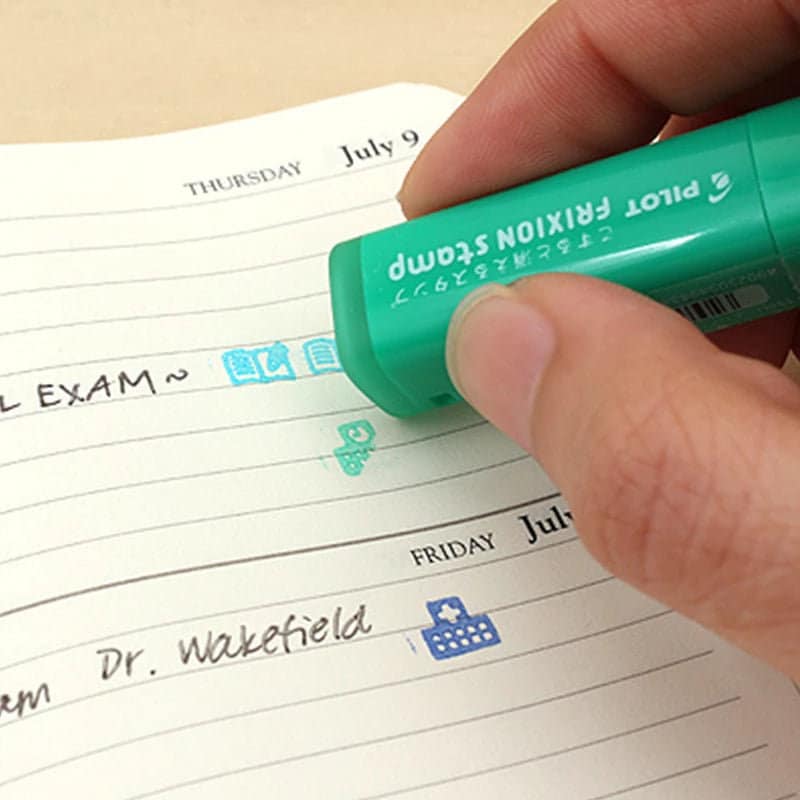 THURSDAY July 9
L EXAM ~
FRIDAY July
am Dr. Wakefield
PILOT
FRIXION Stamp
こすると消えるスタンプ